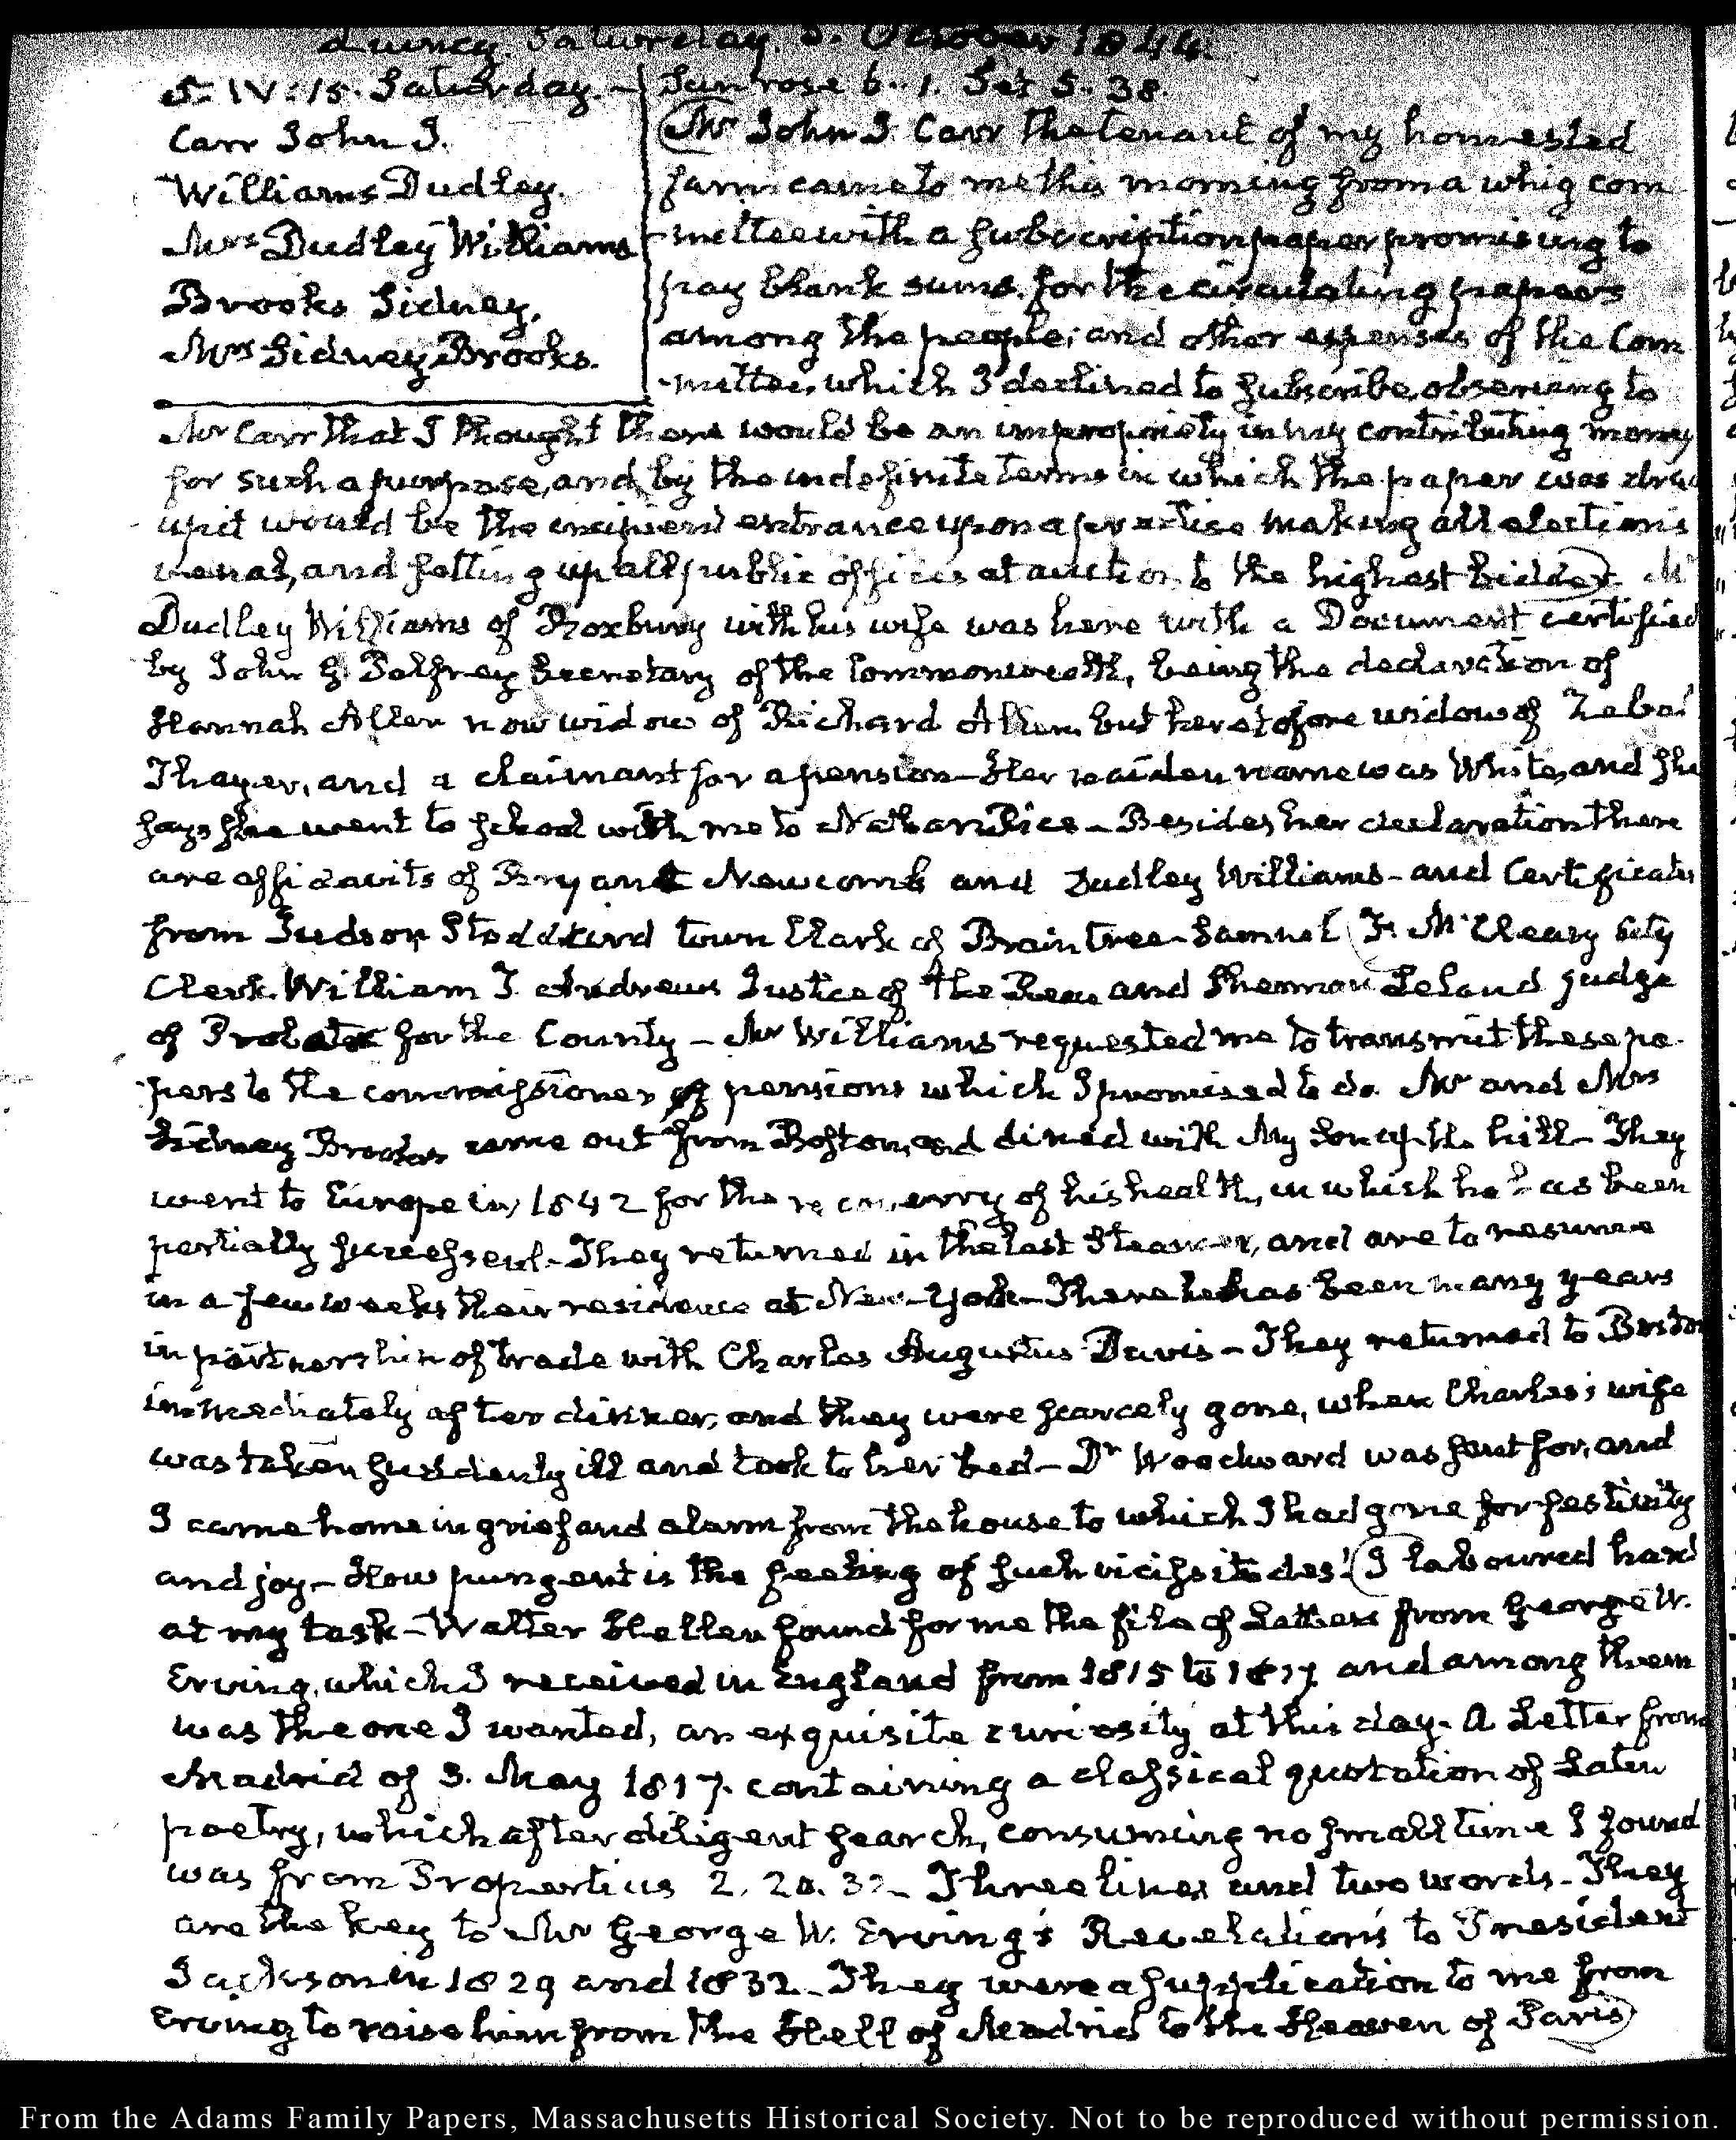 Quincy. Saturday 5. October 1844.
5. IV:15. Saturday.
Carr John J.
Williams Dudley.
Mrs Dudley Williams
Brooks Sidney.
Mrs Sidney Brooks.
Sun rose 6..1. Set 5.38.
Mr John J. Carr the tenant of my homested
farm came to me this morning from a whig com
-mittee with a subscription paper promising to
pay blank sums. for the circulating papers
among the people; and other expenses of the Com
-mittee, which I declined to subscribe, observing to
Mr Carr that I thought there would be an impropriety in my contributing money
for such a purpose, and by the indefinite terms in which the paper was
up it would be the incipient entrance upon a practice making all elections
venal, and setting up all public offices at auction to the highest bidder. Mr
Dudley Williams of Roxbury with his wife was here with a Document certified
by John G. Palfrey Secretary of the Commonwealth, being the declaration of
Hannah Allen now widow of Richard Allen, but heretofore widow of
Thayer, and a claimant for a pension— Her maiden name was White, and she
says she went to school with me to Nathan Rice— Besides her declaration there
are affidavits of Bryant Newcomb and Dudley Williams— and Certificates
from Judson Stoddard town Clerk of Braintree— Samuel F. McCleary City
Clerk. William T. Andrews Justice of the Peace and Sherman Leland judge
of Probate for the County— Mr Williams requested me to transmit these pa-
pers to the commissioner of pensions which I promised to do. Mr and Mrs
Sidney Brooks came out from Boston, and dined with My Son on the hill— They
went to Europe in 1842 for the recovery of his health, in which he has been
partially successful— They returned in the last Steamer, and are to resume
in a few weeks their residence at New-York— There he has been many years
in partnership of trade with Charles Augustus Davis— They returned to Boston
immediately after dinner, and they were scarcely gone, when Charles's wife
was taken suddenly ill and took to her bed— Dr Woodward was sent for, and
I came home in grief and alarm from the house to which I had gone for festivity
and joy— How pungent is the feeling of such vicissitudes! I laboured hard
at my task— Walter Hellen found for me the file of Letters from George W.
Erving, which I received in England from 1815 to 1817. and among them
was the one I wanted, an exquisite curiosity at this day. A Letter from
Madrid of 3. May 1817. containing a classical quotation of Latin
poetry, which after diligent search, consuming no small time I found
was from Propertius 2. 20. 32— Three lines and two words— They
are the key to Mr George W. Erving's Revelations to President
Jackson in 1829 and 1832.— They were a supplication to me from
Erving to raise him from the Hell of Madrid to the Heaven of Paris
From the Adams Family Papers, Massachusetts Historical Society. Not to be reproduced without permission.